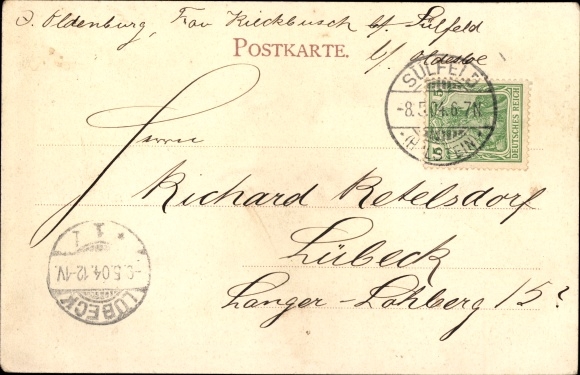 Oldenburg, Frau Kieckbusch b/ Sülfeld
POSTKARTE.
b/ Oldesloe
SÜLFELD
-8.5.04.6-7N.
* (HOLSTEIN) *
5
5
DEUTSCHES REICH
Herrn
Richard Retelsdorf
Lübeck
Langer-Lohberg 15?
LÜBECK
5.04.12-1V.
* 1 *